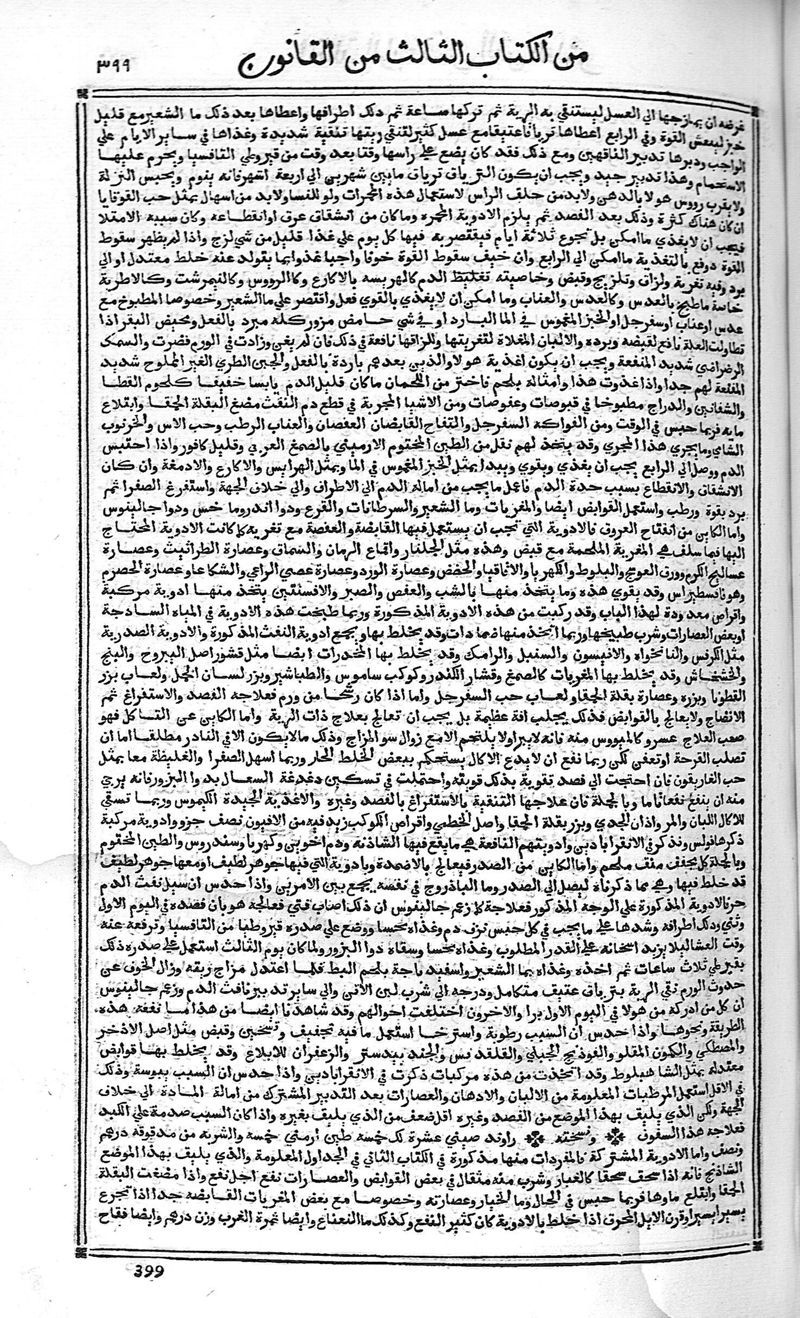 ٣٩٩ من الكتاب الثالث من القانون
غرضه ان يمازجها الي العسل ليستنقي به الرية ثم تركها ساعة ثم دلك اطرافها واعطاها بعد ذلك ما الشعير مع قليل
خبز لينعش القوة وفي الرابع اعطاها ترياقا عتيقا مع عسل كثير لتنقي ريتها تنقية شديدة وغذاها في ساير الايام علي
الواجب ودبرها تدبير الناقهين ومع ذلك فقد كان يضع علي راسها وقتا بعد وقت من قيروطي الثافسيا ويحرم عليها
الاستحمام وهذا تدبير جيد ويجب ان يكون الترياق ترياق مابين شهرين الي اربعة اشهر فانه ينوم ويحبس النزلة
ولا يقرب رووس هولا بالدهن ولا بد من حلف الراس لاستعمال هذه المحمرات ولو للنسا ولا بد من اسهال بمثل حب القوقايا
ان كان هناك كثرة وذلك بعد الفصد ثم يلزم الادوية المحمره وما كان من انشقاق عرق او انقطاعه وكان سببه الامتلا
فيجب ان لا يغذي ما امكن بل تجوع ثلاثة ايام فيقتصر به فيها كل يوم علي غذا قليل من شي لزج واذا لم يظهر سقوط
القوة دوفع بالتغذية ما امكن الي الرابع وان خيف سقوط القوة خوفا واجبا غذوا بما يتولد عنه خلط معتدل او الي
برد وفيه تغرية ولزاق وتلزيج وقبض وخاصيته تغليظ الدم كالهريسه بالاكارع وكالرووس وكالنيمرشت وكالاطرية
خاصة ما طبخ بالعدس وكالعدس والعناب وما امكن ان لا يغذي بالقوي فعل واقتصر علي ما الشعير وخصوصا المطبوخ مع
عدس او عناب او سفرجل او الخبز المغموس في الما البارد او في شي حامض مزور كله مبرد بالفعل ومخيض البقر اذا
تطاولت العلة نافع لقبضه وبرده والالبان المغلاة لتغريتها والزاقها نافعة في ذلك فان لم يغن وزادت في الورم تضرت والسمك
الرضراضي شديد المنفعة ويجب ان يكون اغذية هولا والذين بعدهم باردة بالفعل والجبن الطري الغير المملوح شديد
المنفعة لهم جدا واذا غذوت هذا وامثاله بلحم فاختر من اللحمان ما كان قليل الدم يابسا خفيفا كلحوم القطا
والشفانين والدراج مطبوخا في قبوضات وعفوصات ومن الاشيا المجربة في قطع دم النفث مضغ البقلة الحمقا وابتلاع
مايه فربما حبس في الوقت ومن الفواكه السفرجل والتفاح القابضان العفصان والعناب الرطب وحب الاس والخرنوب
الشاي وما يجري هذا المجري وقد يتخذ لهم نقل من الطين المختوم الارميني بالصمغ العربي وقليل كافور واذا احتبس
الدم ووصل الي الرابع يجب ان يغذي ويقوي ويبدا بمثل الخبز المغموس في الما وبمثل الهرايس والاكارع والادمغة وان كان
الانشقاق والانقطاع بسبب حدة الدم فاعمل ما يجب من امالة الدم الي الاطراف والي خلاف الجهة واستفرغ الصفرا ثم
يرد بقوة ورطب واستعمل القوابض ايضا والمغريات وما الشعير والسرطانات والقرع ودوا اندروما خس ودوا جالينوس
واما الكاين من انفتاح العروق فالادوية التي تجب ان يستعمل فيها القابضة والعفصة مع تغرية كما كانت الادوية المحتاج
اليها فيما سلف هي المغرية الملحمة مع قبض وهذه مثل الجلنار واقماع الرمان والسماق وعصارة الطراثيث وعصارة
عساليج الكرم وورق العوسج والبلوط والكهربا والاقاقيا والحضض وعصارة الورد وعصارة عصي الراعي والشكاعا وعصارة الحصرم
وهو فاقسطيراس وقد يقوي هذه وما يتخذ منها بالشب والعفص والصبر والافسنتين يتخذ منها ادوية مركبة
واقراص معدودة لهذا الباب وقد ركبت من هذه الادوية المذكورة وربما طبخت هذه الادوية في المياه الساذجة
او بعض العصارات وشرب طبيخها وربما اتخذ منها ضمادات وقد يخلط بها ويجمع ادوية النفث المذكورة والادوية الصدرية
مثل الكرفس والنانخواه والانيسون والسنبل والرامك وقد يخلط بها المخدرات ايضا مثل قشور اصل اليبروح والبنج
والخشخاش وقد يخلط بها المغريات كالصمغ وقشار الكندر وكوكب ساموس والطباشير وبزر لسان الحمل ولعاب بزر
القطونا وبزره وعصارة بقلة الحمقا ولعاب حب السفرجل واما اذا كان رشحا من ورم فعلاجه الفصد والاستفراغ ثم
الانضاج ولا يعالج بالقوابض فذلك يجلب افة عظيمة بل يجب ان تعالج بعلاج ذات الرية واما الكاين عن التاكل فهو
صعب العلاج عسر وكالميووس منه فانه لا يبرا ولا يلتحم الا مع زوال سو المزاج وذلك مالا يكون الا في النادر مطلقا اما ان
تصلب القرحة او تعفن لكن ربما نفع ان لا يدع الاكال يستحكم ببعض الخلط الحار وربما اسهل الصفرا والغليظة معا بمثل
حب الغاريقون فان احتجت الي فصد تقوية بذلك قويته واحتملت في تسكين دغدغة السعال بدوا البزور فانه يرجي
منه ان ينفع نفعا ما وبالجملة فان علاجها التنقية بالاستفراغ بالفصد وغيره والاغذية الجيدة الكيموس وربما تسقي
للاكال اللبان والمر واذان الجدي وبزر بقلة الحمقا واصل الخطمي واقراص الكوكب زيد فيه من الافيون نصف جزو وادوية مركبة
ذكرها فولس وتذكر في الاقراباذين وادويتهم النافعة هي ما يقع فيها الشاذنه ودم اخوين وكهربا وسندروس والطين المختوم
وبالجملة كل مجفف منق ملحم واما الكاين من الصدر فيعالج بالاضمدة وبادوية التي فيها جوهر لطيف او معها جوهر لطيف
قد خلط فيها وهي مما ذكرناه ليصل الي الصدر وما الباذروج في نفسه يجمع بين الامرين واذا حدس ان سبل نفث الدم
حر فالادوية المذكورة علي الوجه المذكور فعلاجه كما زعم جالينوس ان ذلك اصاب فتي فعالجه هو بان فصده في اليوم الاول
وثني ودلك اطرافه وشدها علي ما يجب في كل حبس نزف دم وغذاه بحسا ووضع علي صدره قيروطيا من الثافسيا وترفعه عنه
وقت العشا ليلا يزيد اسخانه علي القدر المطلوب وغذاه بحسا وسقاه دوا البزور ولما كان يوم الثالث استعمل علي صدره ذلك
بقيرطي ثلاث ساعات ثم اخذه وغذاه بما الشعير واسفيد باجة بلحم البط فلما اعتدل مزاج ريته وزال الخوف عن
حدوث الورم نقي الرية بترياق عتيف متكامل ودرجه الي شرب لبن الاتن والي ساير تدبير نافث الدم وزعم جالينوس
ان كل من ادركه من هولا في اليوم الاول برا والاخرون اختلفت احوالهم وقد شاهدنا ايضا من هذا ما نفعه هذه
الطريقة ونحوها واذا حدس ان السبب رطوبة واسترخا استعمل ما فيه تجفيف وتسخين وقبض مثل اصل الاذخر
والمصطكي والكمون المقلو والفوذنج الجبلي والقلقديس والجند بيدستر والزعفران للابلاغ وقد يخلط بها قوابض
معتدله مثل الشاهبلوط وقد اتخذت من هذه مركبات ذكرت في الاقراباذين واذا حدس ان السبب يبوسة وذلك
في الاقل استعمل المرطبات المعلومة من الالبان والادهان والعصارات بعد التدبير المشترك من امالة المادة الي خلاف
الجهة ولكن الذي يليف بهذا الموضع من الفصد وغيره اقل ضعف من الذي يليف بغيره واذا كان السبب صدمة علي الكبد
فعلاجه هذا السفوف ۞ ونسخته ۞ راوند صيني عشرة لك خمسه طين ارمني خمسه والشربه من مدقوقه درهم
ونصف واما الادوية المشتركة فالمفردات منها مذكورة في الكتاب الثاني في الجداول المعلومة والذي يليف بهذا الموضع
الشاذنج فانه اذا سحف سحقا كالغبار وشرب منه مثقال في بعض القوابض والعصارات نفع اجل نفع واذا مضغت البقلة
الحمقا وابتلع ماوها فربما حبس في الحال وما الخيار وعصارته وخصوصا مع بعض المغريات القابضه جدا اذا تجرع
يسيرا يسيرا وقرن الايل المحرق اذا خلط بالادوية كان كثير النفع وكذلك ما النعناع وايضا ثمرة الغرب وزن درهم وايضا فقاح
399